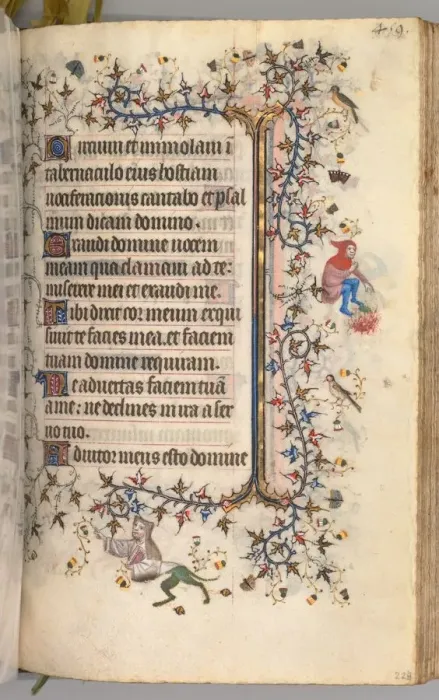 419.
Circuivi et immolavi ī
tabernaculo eius hostiam
vociferationis cantabo et psal
mum dicam domino.
Exaudi domine vocem
meam qua clamavi ad te:
miserere mei et exaudi me.
Tibi dixit cor meum exqui
sivit te facies mea. et faciem
tuam domine requiram.
Ne advertas faciem tuā
a me: ne declines in ira a ser
vo tuo.
Adiutor meus esto domine
228